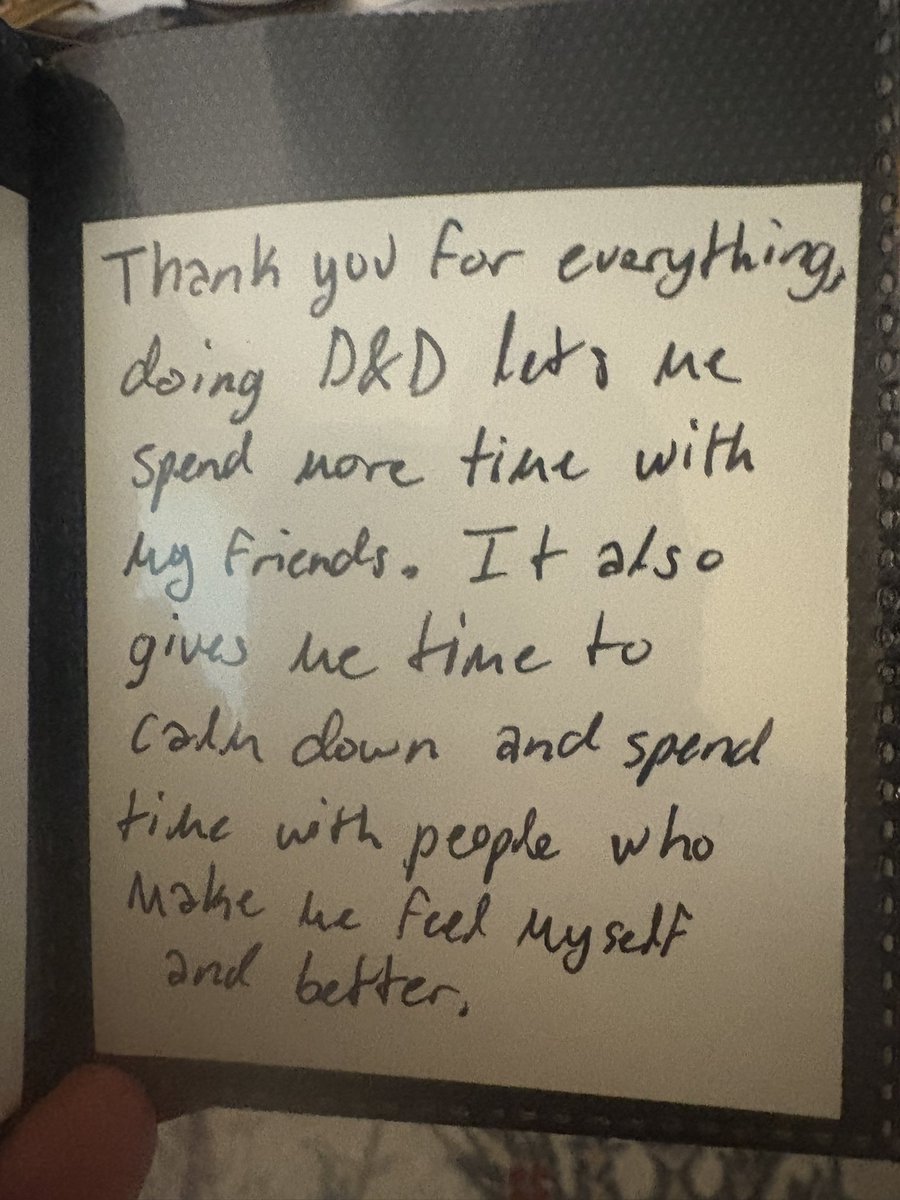 Thank you for everything,
doing D&D lets me
spend more time with
my friends. It also
gives me time to
calm down and spend
time with people who
make me feel myself
and better.